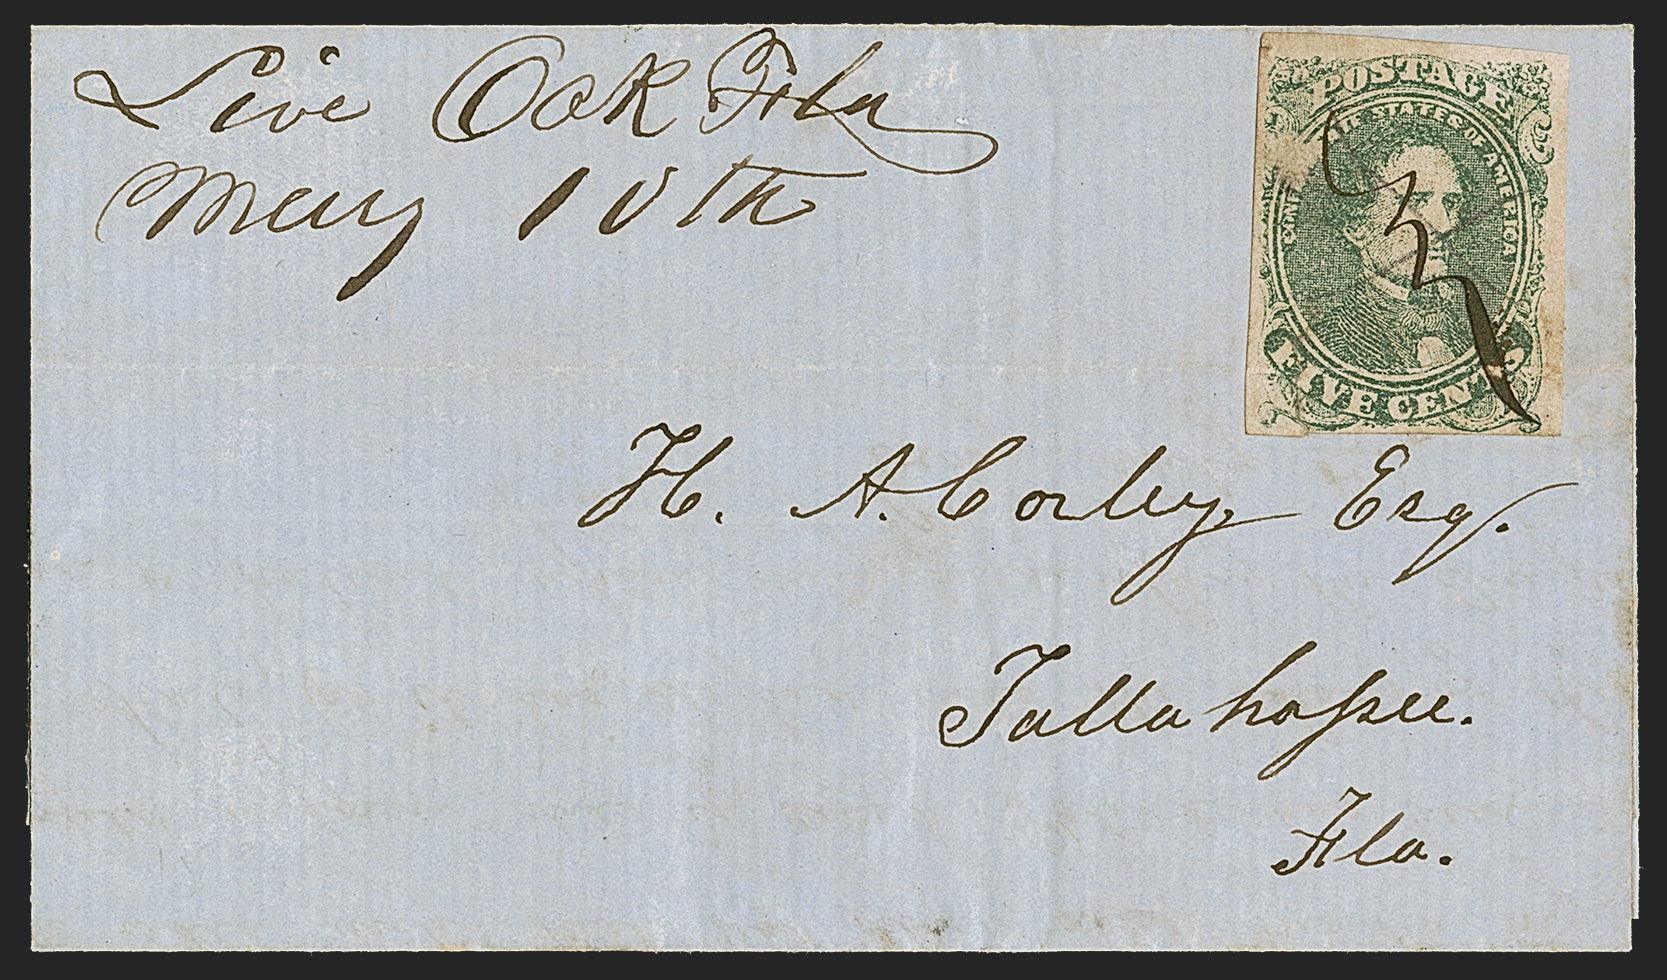 Live Oak Fla
May 10th
POSTAGE
CONFEDERATE STATES OF AMERICA
FIVE CENTS
H. A. Corley, Esq.
Tallahassee.
Fla.